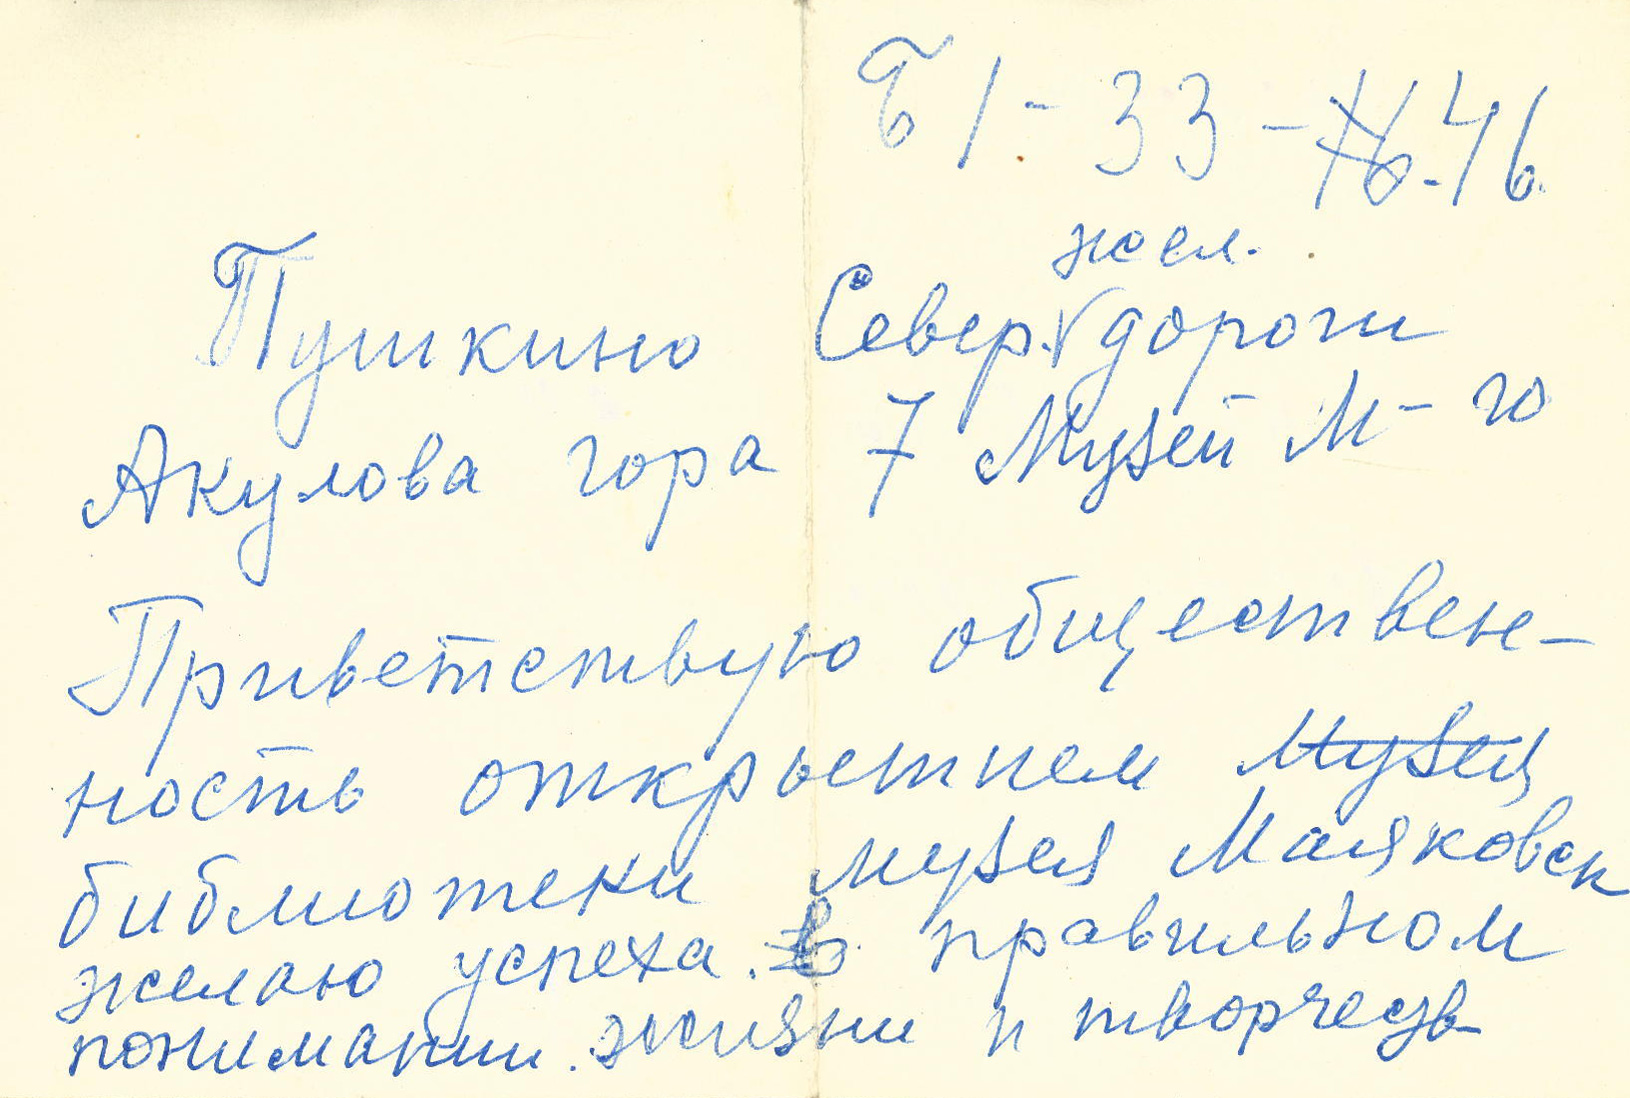 Б1-33-46.46
жел.
Пушкино Север. дороги
Акулова гора 7 Музей М-го
Приветствую обществен-
ность открытием Музея
библиотеки музея Маяковск
желаю успеха. в правильном
понимании. жизни и творчеств